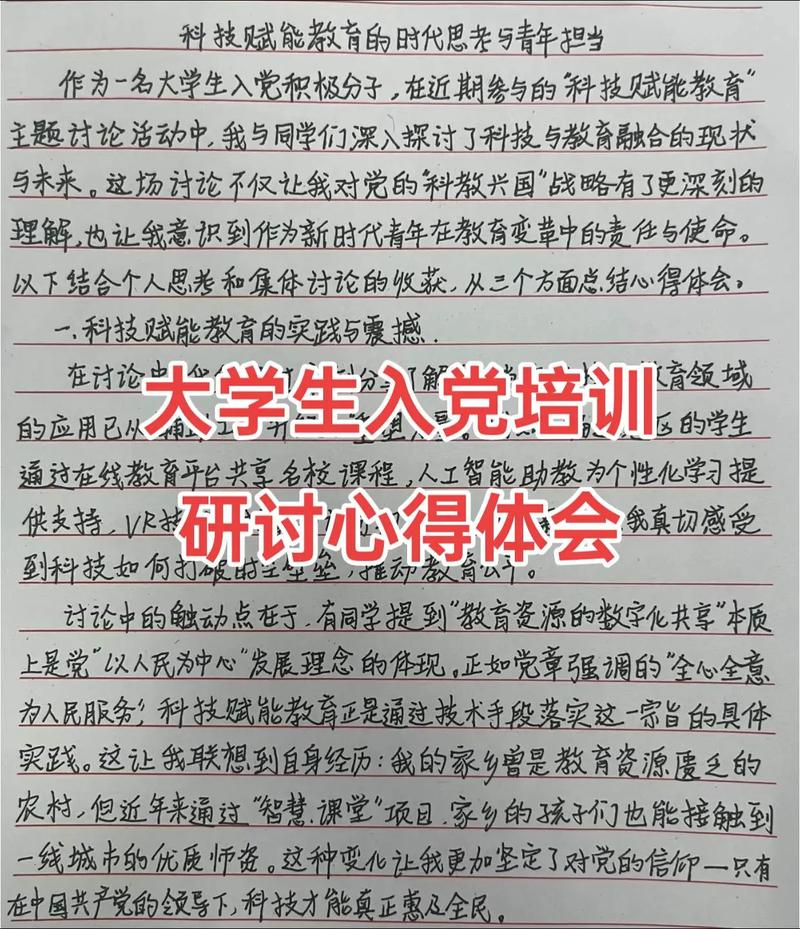 科技赋能教育的时代思考与青年担当
作为一名大学生入党积极分子,在近期参与的“科技赋能教育”
主题讨论活动中,我与同学们深入探讨了科技与教育融合的现状
与未来。这场讨论不仅让我对党的“科教兴国”战略有了更深刻的
理解,也让我意识到作为新时代青年在教育变革中的责任与使命。
以下结合个人思考和集体讨论的收获,从三个方面总结心得体会。
一、科技赋能教育的实践与震撼.
在讨论中 分 了解 教育领域
大学生入党培训
的应用已从 区的学生
通过在线教育平台共享名校课程,人工智能助教为个性化学习提
供支持,VR技 我真切感受
研讨心得体会
到科技如何打破时空壁垒,推动教育公平。
讨论中的触动点在于,有同学提到“教育资源的数字化共享”本质
上是党“以人民为中心”发展理念的体现。正如党章强调的“全心全意
为人民服务”,科技赋能教育正是通过技术手段落实这一宗旨的具体
实践。这让我联想到自身经历:我的家乡曾是教育资源匮乏的
农村,但近年来通过“智慧课堂”项目,家乡的孩子们也能接触到
一线城市的优质师资。这种变化让我更加坚定了对党的信仰—只有
在中国共产党的领导下,科技才能真正惠及全民。